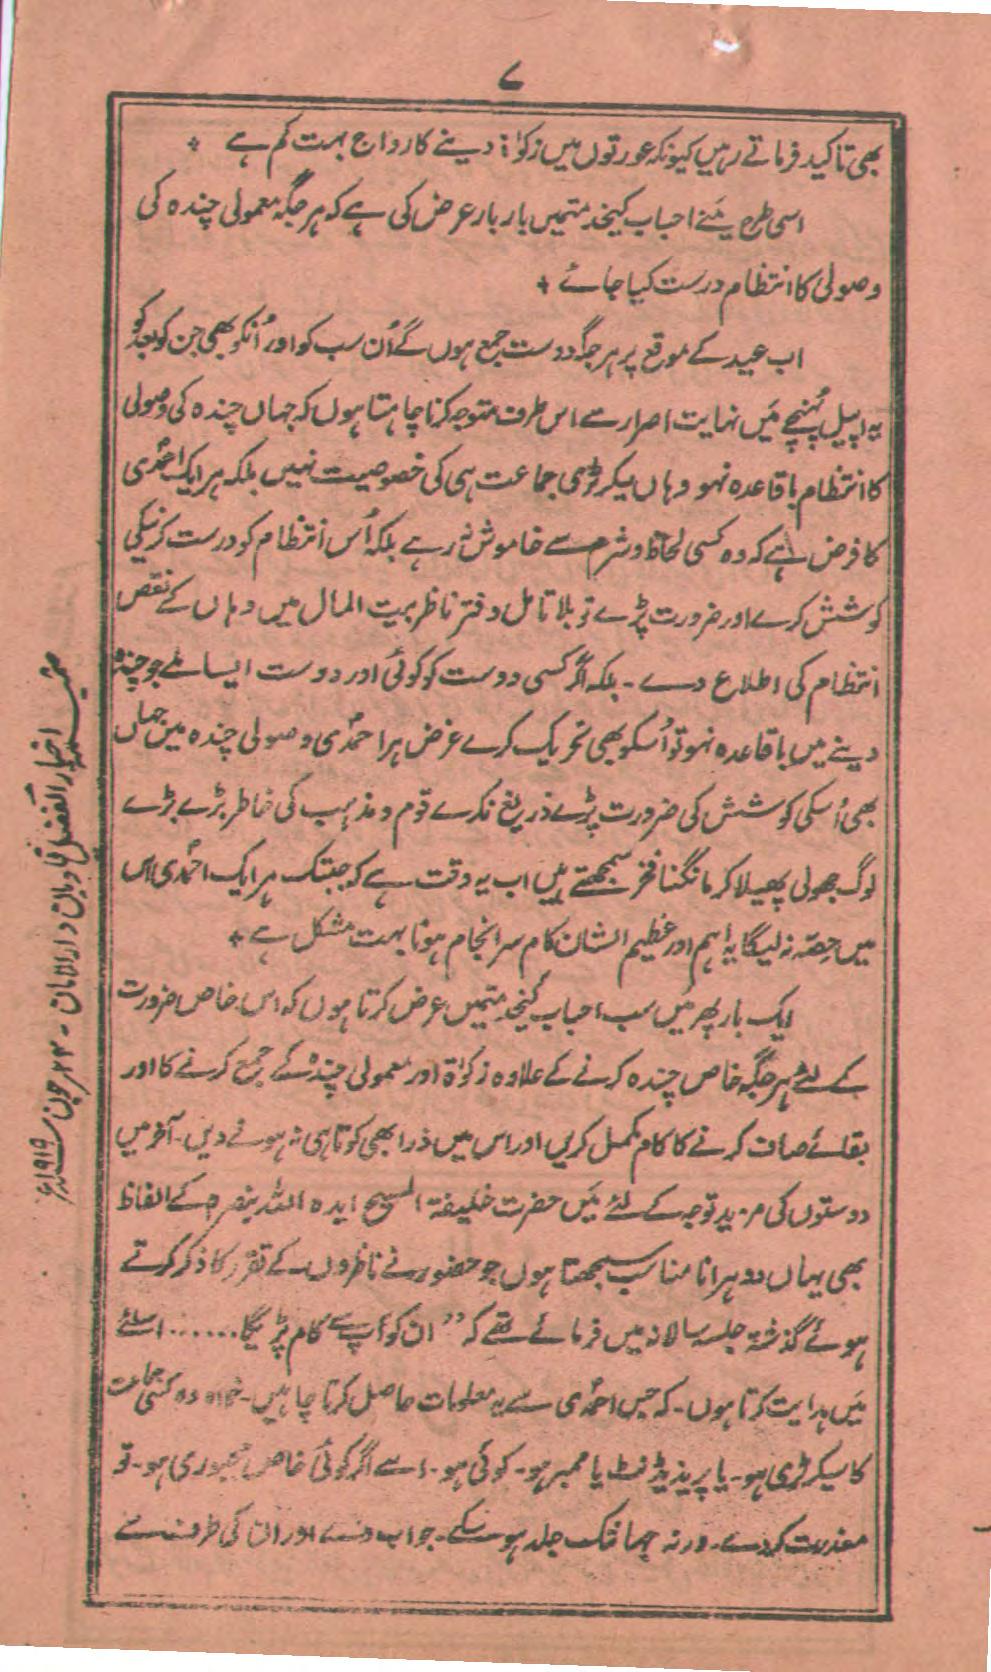 ۷
بھی تاکید فرماتے رہیں کیونکہ عورتوں میں زکوٰۃ دینے کا رواج بہت کم ہے +
اسی طرح مَینے احباب کیخدمتمیں بار بار عرض کی ہے کہ ہر جگہ معمولی چندہ کی
وصولی کا انتظام درست کیا جائے +
اب عید کے موقع پر ہر جگہ دوست جمع ہوں گے اُن سب کو اور اُنکو بھی جن کو بعد کو
یہ اپیل پُہنچے مَیں نہایت اصرار سے اس طرف متوجہ کرنا چاہتا ہوں کہ جہاں چندہ کی وصولی
کا انتظام باقاعدہ نہو وہاں سیکرٹری جماعت ہی کی خصوصیت نہیں بلکہ ہر ایک احمدی
کا فرض ہے کہ وہ کسی لحاظ و شرم سے خاموش نہ رہے بلکہ اُس انتظام کو درست کرنیکی
کوشش کرے اور ضرورت پڑے تو بلا تامل دفتر ناظر بیت المال میں وہاں کے نقص
انتظام کی اطلاع دے ۔ بلکہ اگر کسی دوست کو کوئی اور دوست ایسا ملے جو چندہ
دینے میں باقاعدہ نہو تو اُسکو بھی تحریک کرے غرض ہر احمدی وصولی چندہ میں جہاں
بھی اُسکی کوشش کی ضرورت پڑے دریغ نکرے قوم و مذہب کی خاطر بڑے بڑے
لوگ جھولی پھیلا کر مانگنا فخر سمجھتے ہیں اب یہ وقت ہے کہ جبتک ہر ایک احمدی اس
میں حصّہ نہ لیگا یہ اہم اور عظیم الشان کام سرانجام ہونا بہت مشکل ہے +
ایک بار پھر مَیں سب احباب کیخدمتمیں عرض کرتا ہوں کہ اس خاص ضرورت
کے لئے ہر جگہ خاص چندہ کرنے کے علاوہ زکوٰۃ اور معمولی چندہ کے جمع کرنے کا اور
بقائے صاف کرنے کا کام مکمل کریں اور اس میں ذرا بھی کوتاہی نہ ہونے دیں ۔ آخر میں
دوستوں کی مزید توجہ کے لئے مَیں حضرت خلیفۃ المسیح ایدہ اللہ بنصرہ کے الفاظ
بھی یہاں دوہرانا مناسب سمجھتا ہوں جو حضور نے ناظروں کے تقرر کا ذکر کرتے
ہوئے گذشتہ جلسہ سالانہ میں فرمائے تھے کہ ’’ ان کو آپ سے کام پڑیگا ...... اسلئے
مَیں ہدایت کرتا ہوں ۔ کہ جس احمدی سے یہ معلومات حاصل کرنا چاہیں ۔ خواہ وہ کسی جماعت
کا سیکرٹری ہو ۔ یا پریذیڈنٹ یا ممبر ہو ۔ کوئی ہو ۔ اسے اگر کوئی خاص مجبوری ہو ۔ تو
معذرت کر دے ۔ ورنہ جہاں تک جلد ہو سکے ۔ جواب دے اور ان کی طرف سے
ضمیمہ اخبار الفضل قادیان دارالامان ۔ ۲۴ جون سنہ ۱۹۱۹ء